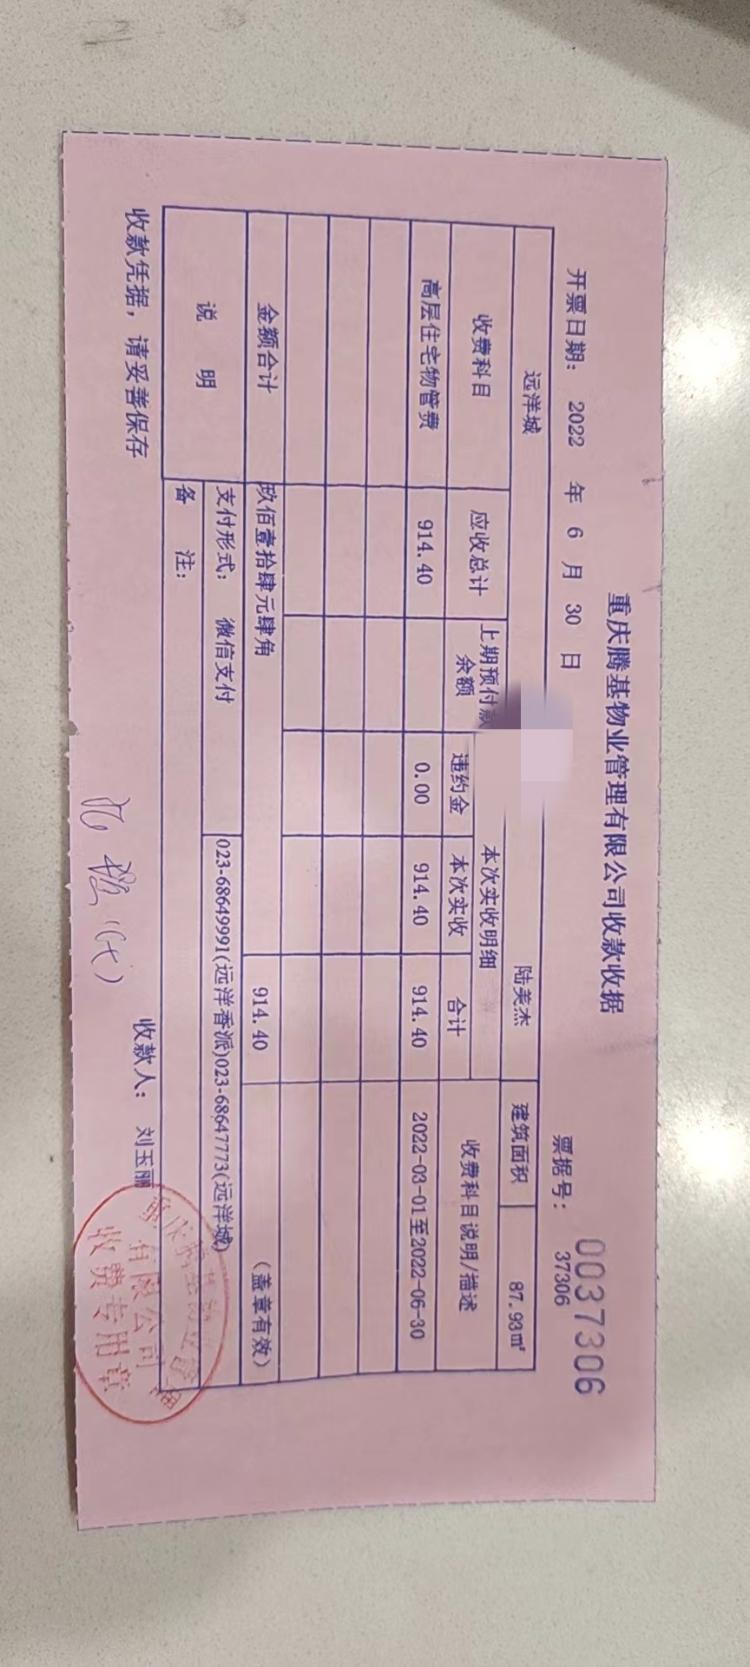 重庆腾基物业管理有限公司收款收据
开票日期： 2022 年 6 月 30 日
票据号： 0037306
37306
远洋城 陆美杰 建筑面积 87.93㎡
收费科目 应收总计 上期预付款余额 本次实收明细 收费科目说明/描述
违约金 本次实收 合计
高层住宅物管费 914.40 0.00 914.40 914.40 2022-03-01至2022-06-30
金额合计 玖佰壹拾肆元肆角 914.40 (盖章有效)
说 明 支付形式： 微信支付 023-68649991(远洋香派)023-68647773(远洋城)
备 注：
收款凭据，请妥善保存 收款人： 刘玉丽
重庆腾基物业管理
有限公司
收费专用章